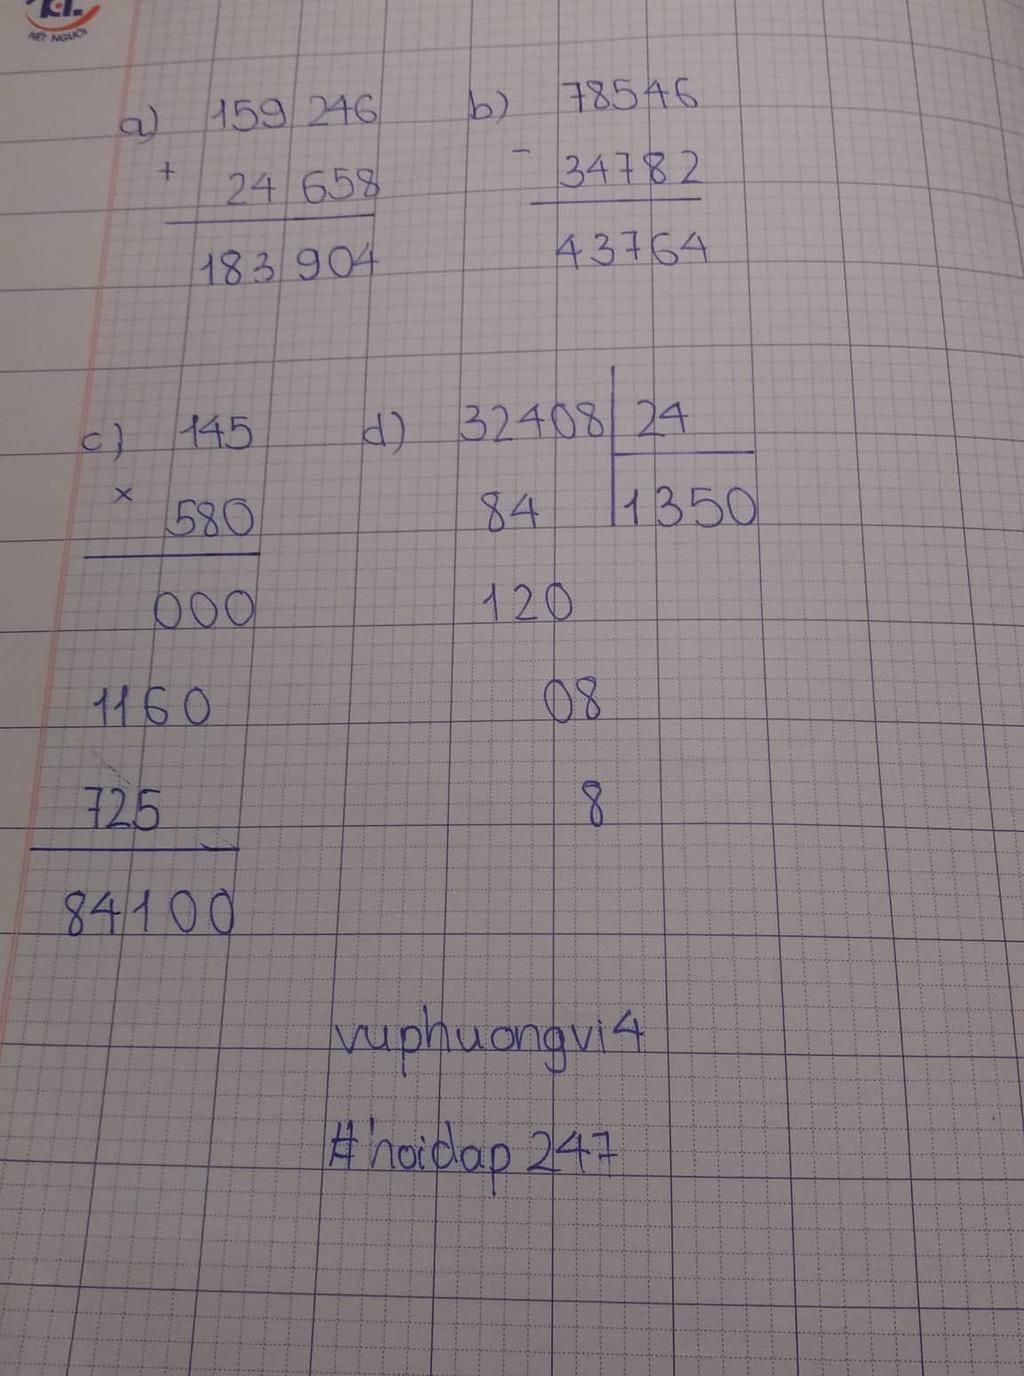 NÉT NGƯỜI
a) 159 246
+ 24 658
183 904
b) 78546
- 34782
43764
c) 145
× 580
000
1160
725
84100
d) 32408 24
84 1350
120
08
8
vuphuongvi4
#hoidap 247